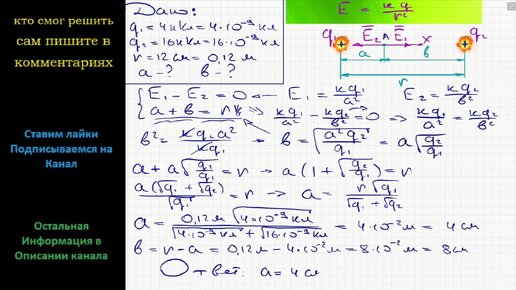 кто смог решить
сам пишите в
комментариях
Ставим лайки
Подписываемся на
Канал
Остальная
Информация в
Описании канала
Дано:
q₁ = 4нКл = 4·10⁻⁹ Кл
q₂ = 16нКл = 16·10⁻⁹ Кл
r = 12 см = 0,12 м
a - ? b - ?
E = kq/r²
q₁ E₂ A E₁ x q₂
a b
r
{ E₁ - E₂ = 0 ← E₁ = kq₁/a² E₂ = kq₂/b²
a + b = r ⇒ kq₁/a² - kq₂/b² = 0 ⇒ kq₁/a² = kq₂/b²
b² = kq₂a²/kq₁ ⇒ b = √(a²q₂/q₁) = a√(q₂/q₁)
a + a√(q₂/q₁) = r → a(1 + √(q₂/q₁)) = r
a(√q₁ + √q₂)/√q₁ = r → a = r√q₁/(√q₁ + √q₂)
a = 0,12м √(4·10⁻⁹ Кл)/(√(4·10⁻⁹ Кл) + √(16·10⁻⁹ Кл)) = 4·10⁻² м = 4 см
b = r - a = 0,12 м - 4·10⁻² м = 8·10⁻² м = 8 см
Ответ: a = 4 см